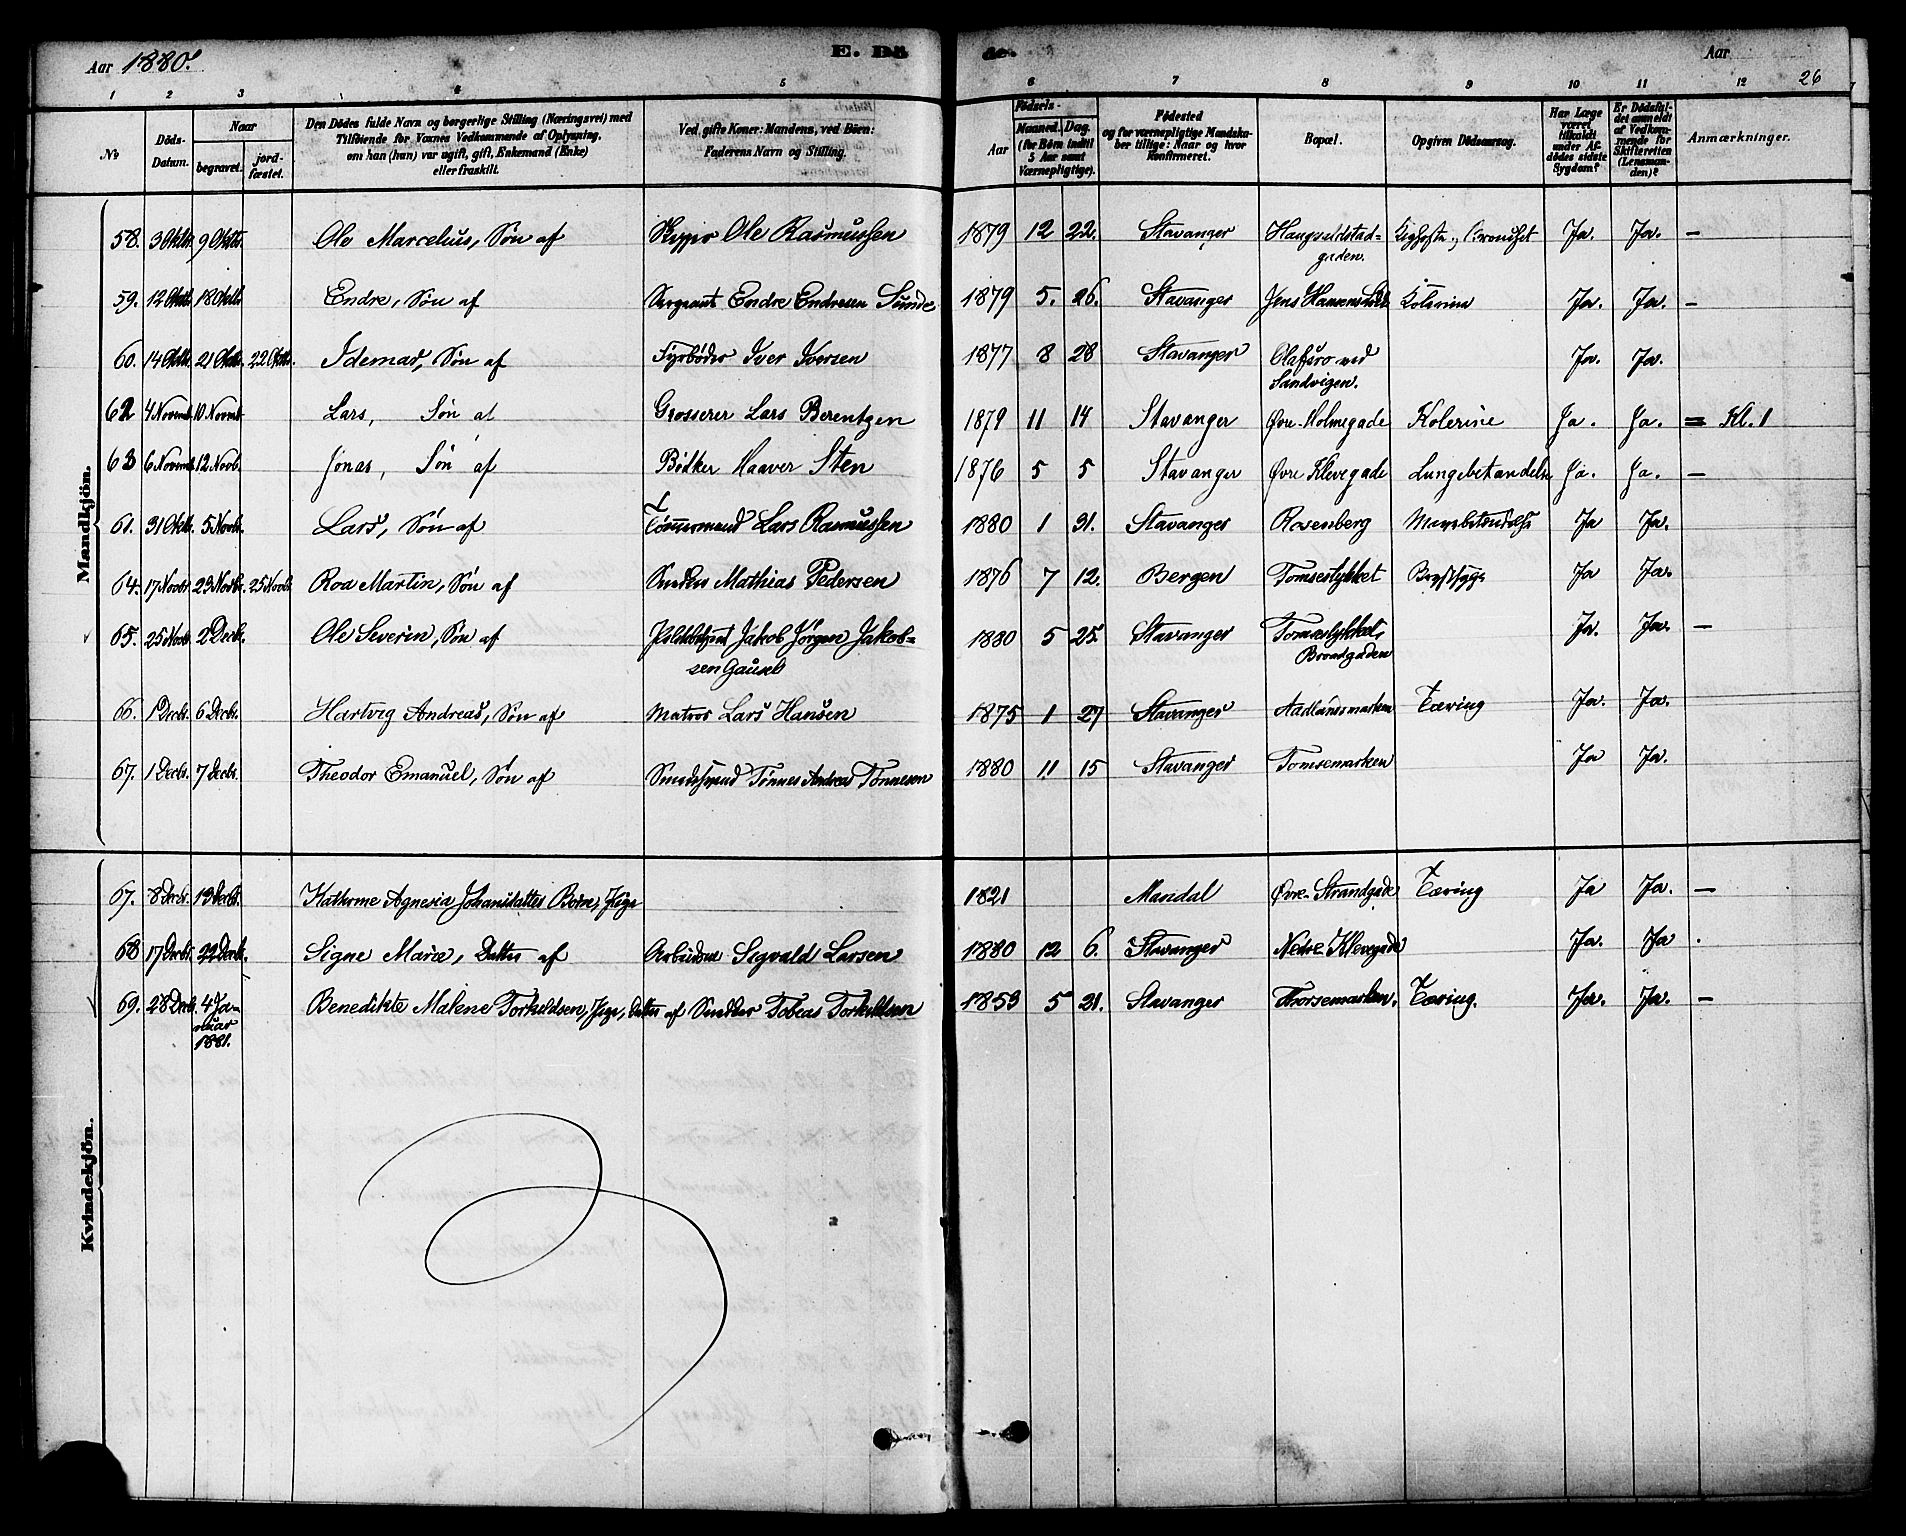 Aar 1880.
E. Dö
de.
Aar
26
1 2 3 4 5 6 7 8 9 10 11 12
No
Döds-Datum.
Naar
begravet.
jord-fæstet.
Den Dödes fulde Navn og borgerlige Stilling (Næringsvei) med
Tilföiende for Voxnes Vedkommende af Oplysning,
om han (hun) var ugift, gift, Enkemand (Enke)
eller fraskilt.
Ved gifte Koner: Mandens, ved Börn:
Faderens Navn og Stilling.
Födsels-
Aar
Maaned. Dag.
(for Börn indtil
5 Aar samt
Værnepligtige).
Födested
og for værnepligtige Mandska-
ber tillige: Naar og hvor
Konfirmeret.
Bopæl.
Opgiven Dödsaarsag.
Har Læge
været
tilkaldt
under Af-
dödes sidste
Sygdom?
Er Dödsfal-
det anmeldt
af Vedkom-
mende for
Skifteretten
(Lensman-
den)?
Anmærkninger.
Mandkjön.
58. 3 Oktbr. 9 Oktb. Ole Marcelius, Søn af Skipper Ole Rasmussen 1879 12 22. Stavanger Haugvaldstad-
gaden. Kighoste, Bronchit Ja. Ja. —
59. 12 Oktb. 18 Oktb. Endre, Søn af Sergeant Endre Endresen Sunde 1879 5. 26. Stavanger Jens Hansens Kolerine Ja. Ja. —
60. 14 Oktb. 21 Oktb. 22 Oktb. Idemar, Søn af Fyrbøder Iver Iversen 1877 8 28 Stavanger Olafsro ved
Sandvigen. Ja. Ja.
62 4 Novmb. 10 Novmb. Lars, Søn af Grosserer Lars Berentzen 1879 11 14 Stavanger Øvre Holmegade Kolerine Ja. Ja. = Kl. 1
63 6 Novmb. 12 Novb. Jonas, Søn af Bødker Haaver Sten 1876 5 5 Stavanger Øvre Klevegade Lungebetændelse Ja. Ja. —
61. 31 Oktb. 5 Novb. Lars, Søn af Tømmermand Lars Rasmussen 1880 1 31. Stavanger Rosenberg Ja Ja.
64. 17 Novbr. 23 Novbr. 25 Novb. Roa Martin, Søn af Snedker Mathias Pedersen 1876 7 12. Bergen Tomsestykket Brystsyge Ja Ja.
65. 25 Novb. 2 Decb. Ole Severin, Søn af Politibetjent Jakob Jørgen Jakob-
sen Gausel 1880 5 25. Stavanger Tomsestykket,
Brandgaden Ja. Ja. —
66. 1 Decbr. 6 Decbr. Hartvig Andreas, Søn af Matros Lars Hansen 1875 1 27 Stavanger Aadlandsmarken Tæring Ja. Ja.
67. 1 Decbr. 7 Decbr. Theodor Emanuel, Søn af Smedesvend Tønnes Andreas Tønnesen 1880 11 15 Stavanger Tomsemarken Ja Ja.
Kvindekjön.
67. 8 Decbr. 13 Decbr. Kathrine Agnesia Johansdatter Boine, Pige 1821 Mandal Øvre Strandgade Tæring Ja Ja. —
68 17 Decbr. 22 Decb. Signe Marie, Datter af Arbeidsm. Sigvald Larsen 1880 12 6. Stavanger Nedre Klevegade Ja. Ja .
69. 28 Decb. 4 Ja-
nuar
1881. Benedikte Malene Torkildsen, Pige, Datter af Snedker Tobias Torkildsen 1853 5 21. Stavanger Thomsemarken. Tæring. Ja. Ja. —